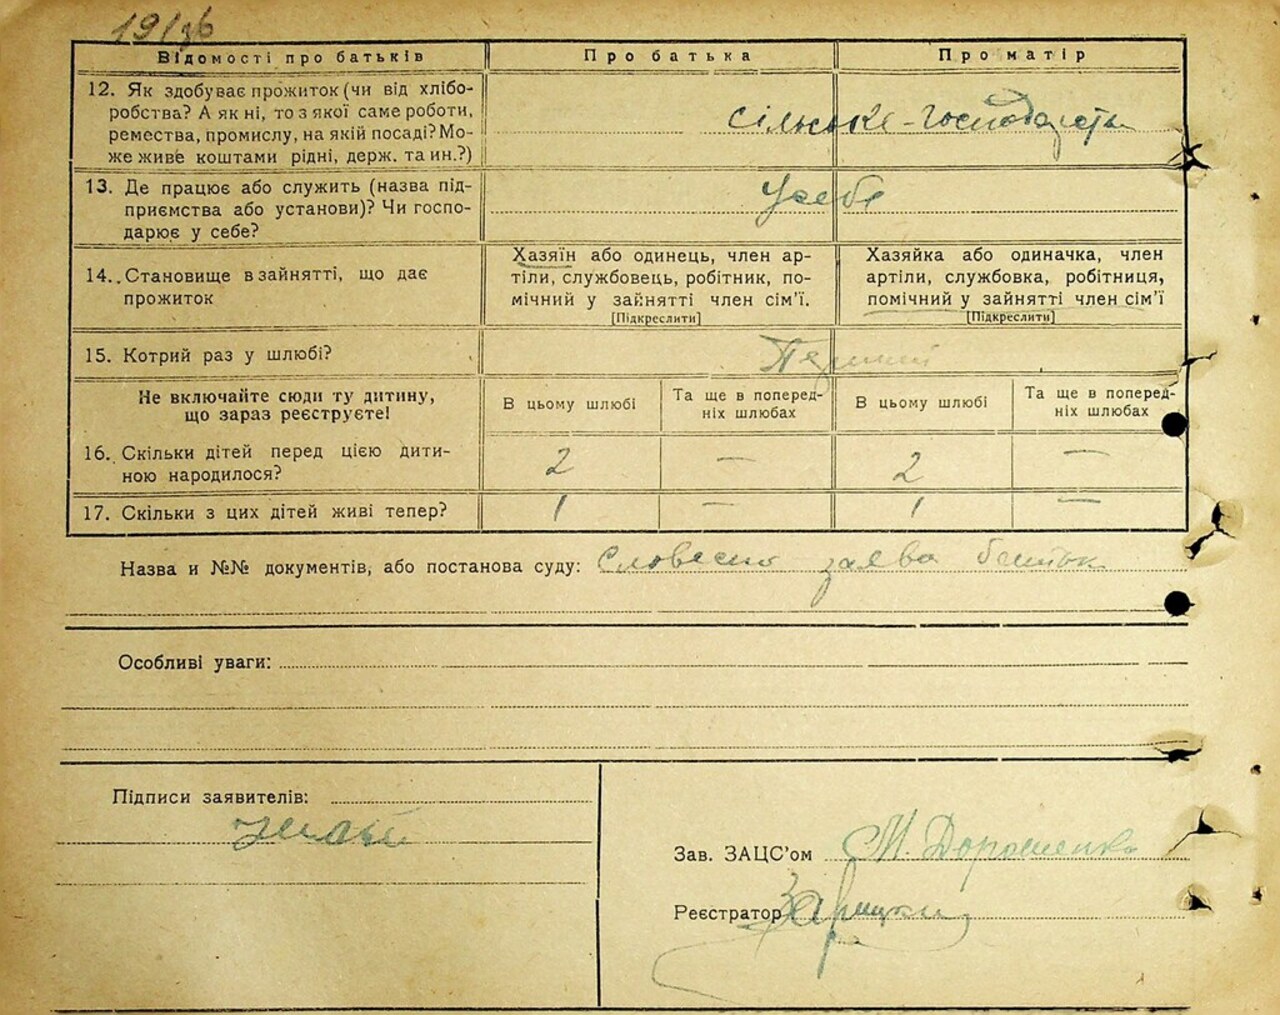 19/36
Відомості про батьків Про батька Про матір
12. Як здобуває прожиток (чи від хлібо-
робства? А як ні, то з якої саме роботи,
ремества, промислу, на якій посаді? Мо-
же живе коштами рідні, держ. та ин.?)
сільське-господарство
13. Де працює або служить (назва під-
приємства або установи)? Чи госпо-
дарює у себе?
У себе
14. Становище в зайнятті, що дає
прожиток
Хазяїн або одинець, член ар-
тіли, службовець, робітник, по-
мічний у зайнятті член сім'ї.
[Підкреслити]
Хазяйка або одиначка, член
артіли, службовка, робітниця,
помічний у зайнятті член сім'ї
[Підкреслити]
15. Котрий раз у шлюбі?
Перший
Не включайте сюди ту дитину,
що зараз реєструєте!
В цьому шлюбі
Та ще в поперед-
ніх шлюбах
В цьому шлюбі
Та ще в поперед-
ніх шлюбах
16. Скільки дітей перед цією дити-
ною народилося?
2 — 2 —
17. Скільки з цих дітей живі тепер?
1 — 1 —
Назва и №№ документів, або постанова суду: Словесно заява батька
Особливі уваги:
Підписи заявителів:
Зав. ЗАЦС'ом М. Дорошенко
Реєстратор Зарицки